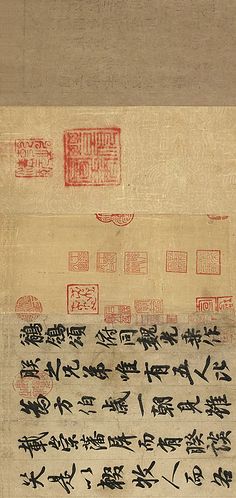 鶺鴒頌 俯同魏光乘作
朕之兄弟唯有五人比
為方伯歲一朝見雖
載崇藩屏而有睽談
笑是以輟牧人而各